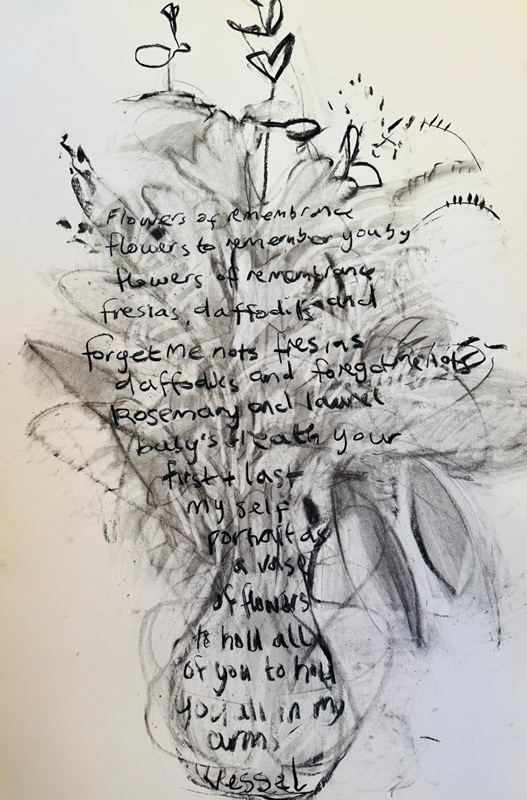 Flowers of remembrance
flowers to remember you by
flowers of remembrance
fresias, daffodils and
forget me nots fresias
daffodils and foregetmenots
Rosemary and laurel
baby's death your
first + last
my self
portrait as
a vase
of flowers
to hold all
of you to hold
you all in my
arms
Vessel